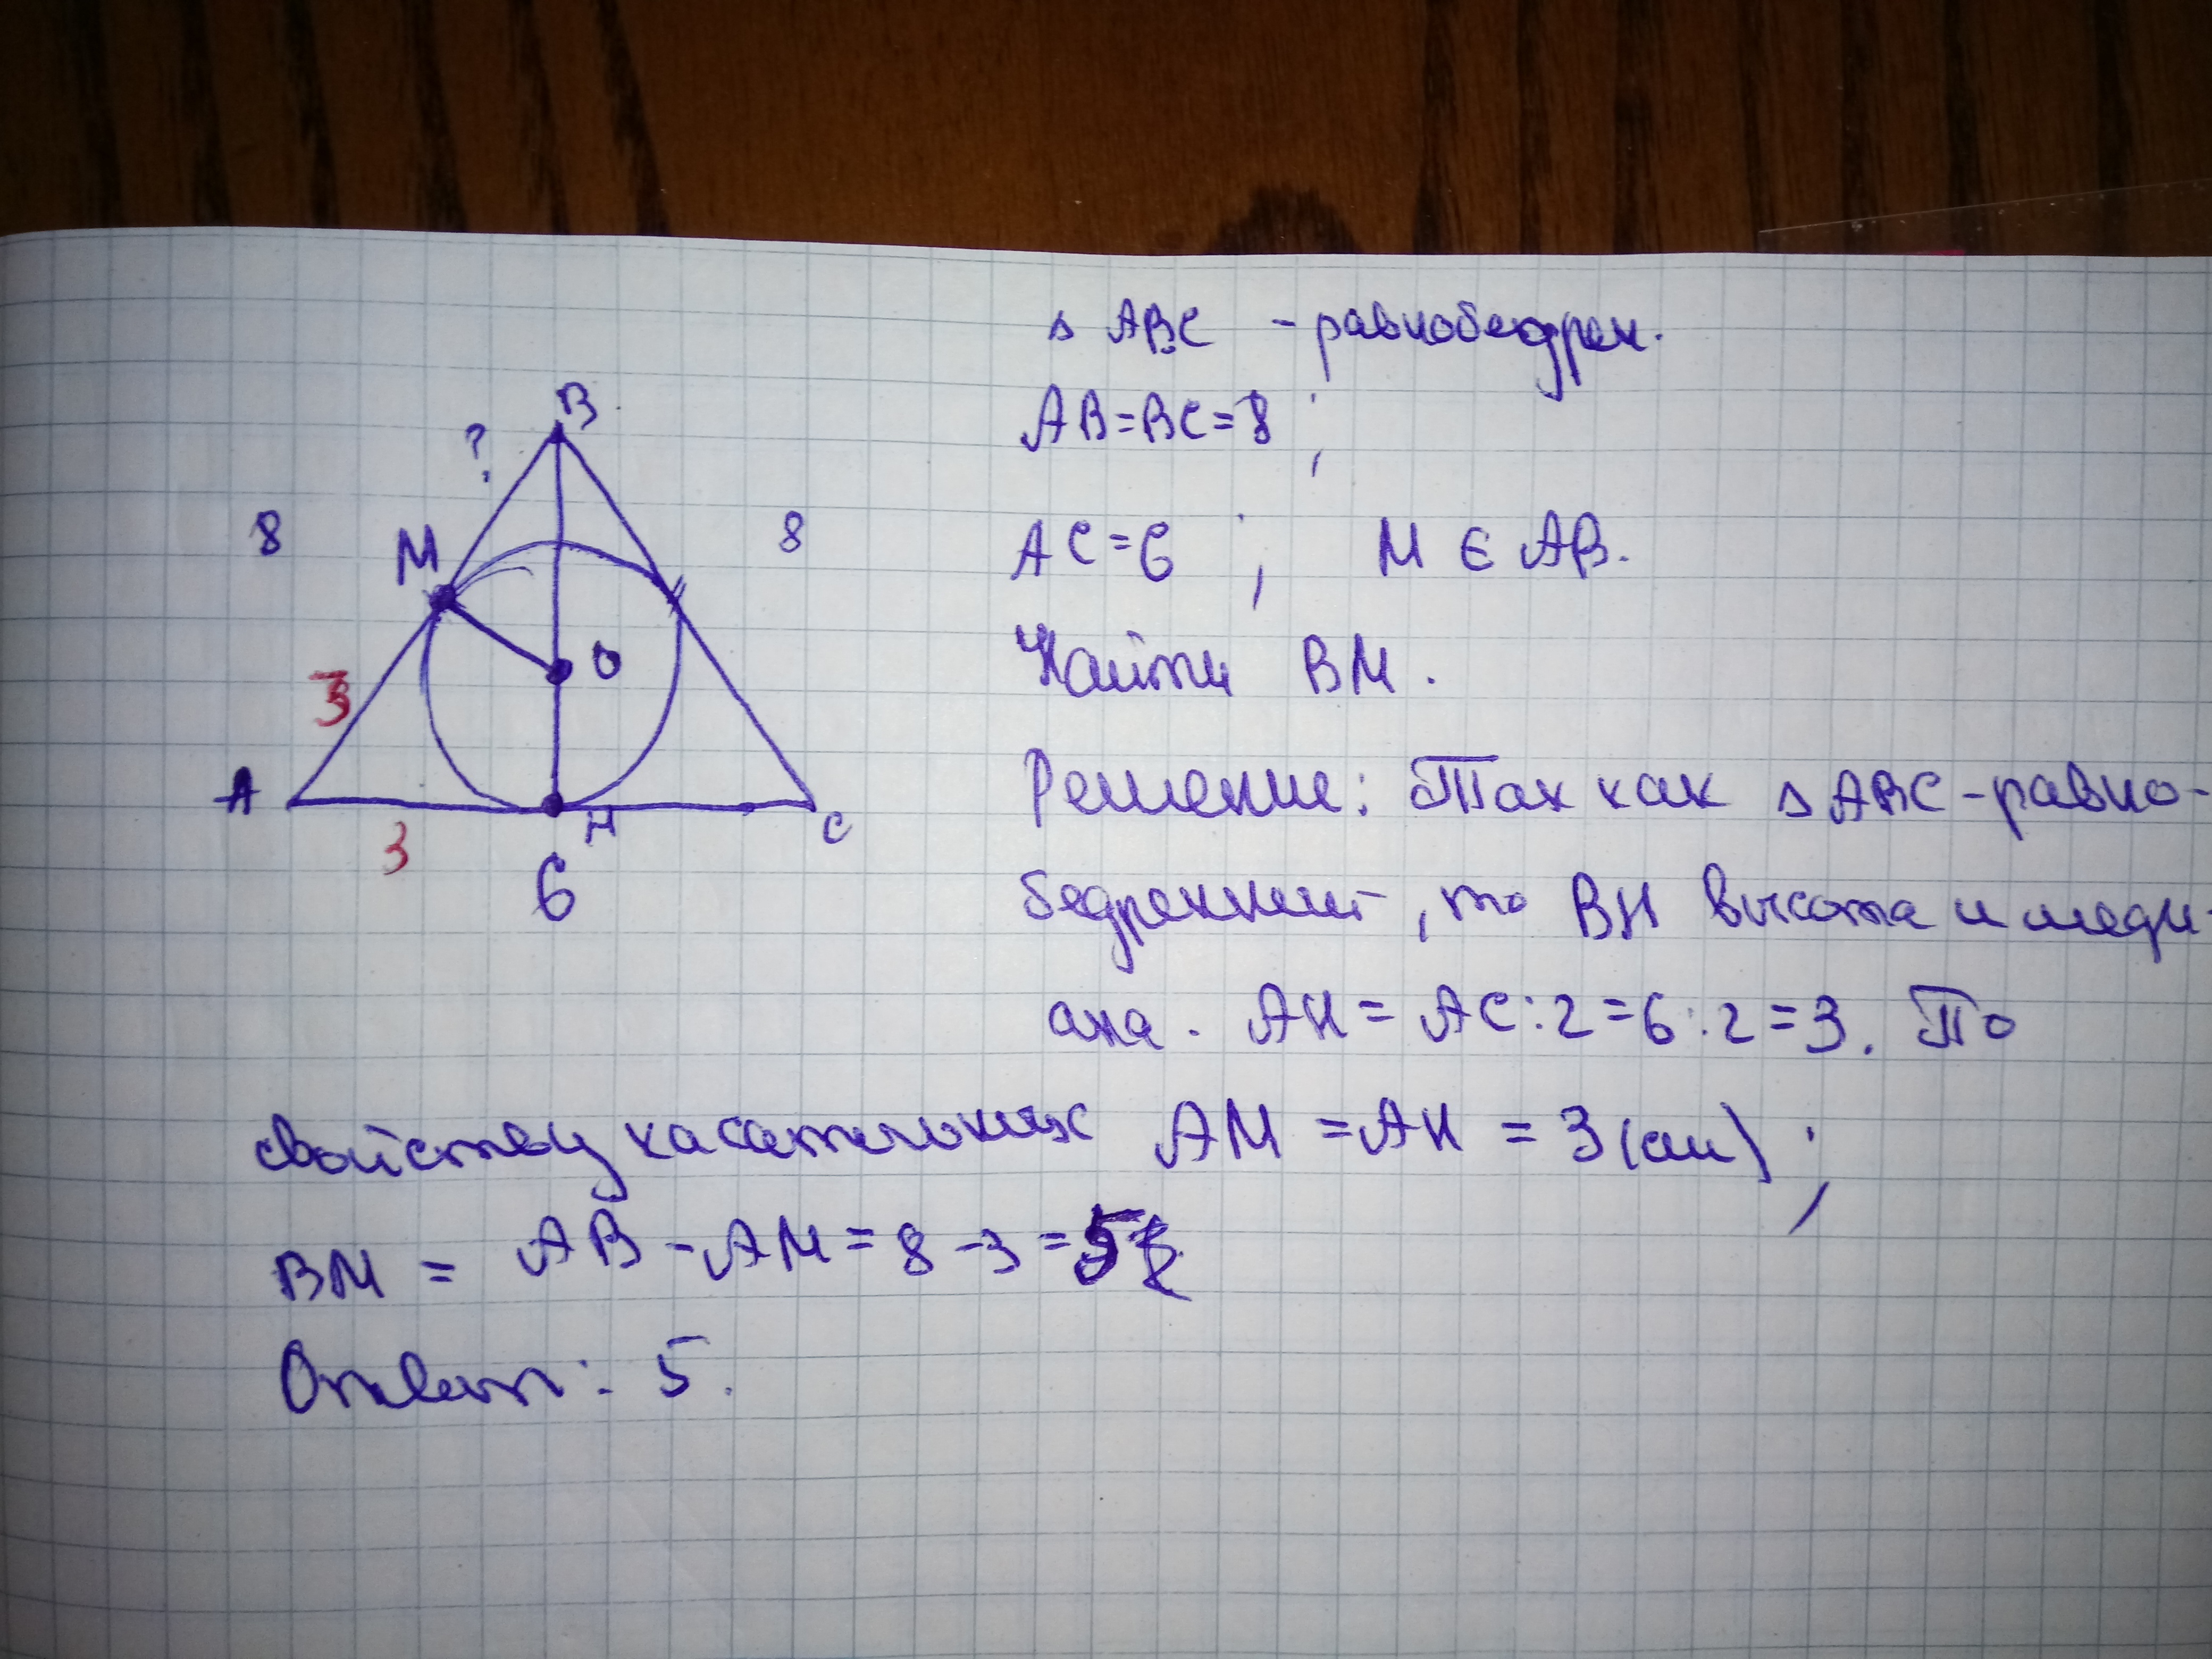 B
?
8
M
8
O
3
A
H
C
3
6
Δ ABC - равнобедрен.
AB=BC=8 ;
AC=6 ; M ∈ AB.
Найти BM.
Решение: Так как Δ ABC - равно-
бедренный, то BH высота и меди-
ана. AH = AC:2=6:2=3. По
свойству касательных AM = AH = 3 (см) ;
BM = AB - AM = 8 - 3 = 5
Ответ: 5.